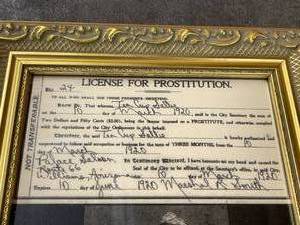 LICENSE FOR PROSTITUTION.
No. 24
TO ALL WHO SHALL SEE THESE PRESENTS, GREETING:
KNOW YE, That whereas Ten Cup Sallie
on the 10 day of March 1920, paid to the City Secretary the sum of
Two Dollars and Fifty Cents ($2.50), being the License imposed on a PROSTITUTE, and otherwise complied
with the regulations of the City Ordinances in this behalf:
Therefore, the said Ten Cup Sallie is hereby authorized
respectfully to follow said occupation or business for the term of THREE MONTHS, from the 10
day March 1920
Palace Saloon In Testimony Whereof, I have hereunto set my hand caused the
66 Seal of the City to be affixed, at the Secretary's office, in said City, this
Williams, Arizona 10 day of March 1920
Expires 10 June 1920 Marshal R Smith
NOT TRANSFERABLE